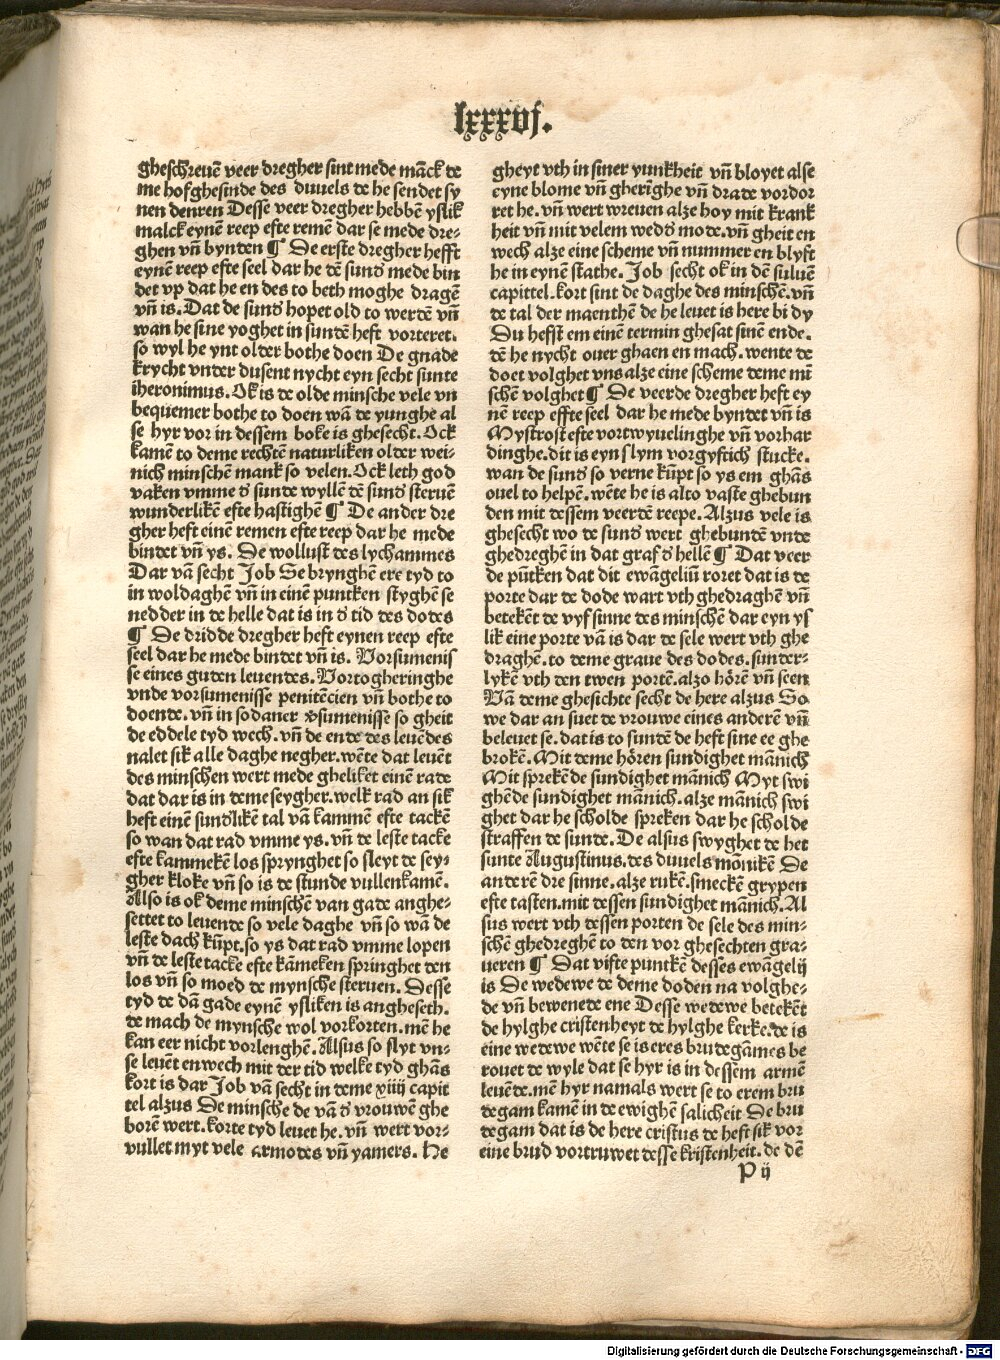 lxxxvj.
gheschreuē veer dregher sint mede mãck de
me hofghesinde des duuels de he sendet sy
nen denren Desse veer dregher hebbē yslik
malck eynē reep efte remē dar se mede dre⸗
ghen vñ bynten ¶ De erste dregher hefft
eynē reep efte seel dar he dē sunds mede bin
det vp dat he en des to beth moghe dragē
vñ is. Dat de sunds hopet old to werdē vñ
wan he sine yoghet in sundē heft vorteret.
so wyl he ynt older bothe doen De gnade
krycht vnder dusent nycht eyn secht sunte
iheronimus. Ok is de olde minsche vele vn
bequemer bothe to doen wã de yunghe al
se hyr vor in dessem boke is ghesecht. Ock
kamē to deme rechtē naturliken older wei⸗
nich minschēn mank so velen. Ock leth god
vaken vmme d̕ sunde wyllē dē sund̕ steruē
wunderlikē efte hastighē ¶ De ander dre
gher heft einē remen efte reep dar he mede
bindet vñ ys. De wollust des lychammes
Dar vã secht Job Se brynghē ere tyd to
in woldaghē vñ in einē puntken styghē se
nedder in de helle dat is in d̕ tid des dodes
¶ De dridde dregher heft eynen reep efte
seel dar he mede bindet vñ is. Vorsumenis
se eines guden leuendes. Vortogheringhe
vnde vorsumenisse penitēcien vñ bothe to
doende. vñ in sodaner v̕sumenisse so gheit
de eddele tyd wech. vñ de ende des leuēdes
nalet sik alle daghe negher. wēte dat leuēt
des minschen wert mede ghelikēt einē rade
dat dar is in deme seygher. welk rad an sik
heft einē sund̕likē tal vã kammē efte tackē
so wan dat rad vmme ys. vñ de leste tacke
efte kammekē los sprynghet so sleyt de sey⸗
gher kloke vñ so is de stunde vullenkamē.
Also is ok deme minschē van gade anghe⸗
settet to leuende so vele daghe vñ so wã de
leste dach kūpt. so ys dat rad vmme lopen
vñ de leste tacke efte kãmeken springhet den
los vñ so moed de mynsche steruen. Desse
tyd de dã gade eynē ysliken is angheseth.
de mach de mynsche wol vorkorten. mē he
kan eer nicht vorlenghē. Alsus so slyt vn⸗
se leuēt enwech mit der tid welke tyd ghãs
kort is dar Job vã secht in deme xiiij capit
tel alzus De minsche de vã d̕ vrouwē ghe
borē wert. korte tyd leuet he. vñ wert vor⸗
vullet myt vele armodes vñ yamers. He
gheyt vth in siner yunkheit vñ bloyet alse
eyne blome vñ gherīghe vñ drade vordor
ret he. vñ wert wreuen alze hoy mit krank
heit vñ mit velem wedd̕ mode. vñ gheit en
wech alze eine scheme vñ nummer en blyft
he in eynē stathe. Job secht ok in dē suluē
capittel. kort sint de daghe des minschē. vñ
de tal der maenthē de he leuet is here bi dy
Du hefst em einē termin ghesat sinē ende.
dē he nycht ouer ghaen en mach. wente de
doet volghet vns alze eine scheme deme mī
schē volghet ¶ De veerde dregher heft ey
nē reep effte seel dar he mede byndet vñ is
Mystrost efte vortwyuelinghe vñ vorhar
dinghe. dit is eyn slym vorgyftich stucke.
wan de sund̕ so verne kūpt so ys em ghãs
ouel to helpē. wēte he is alto vaste ghebun
den mit dessem veerdē reepe. Alzus vele is
ghesecht wo de sund̕ wert ghebundē vnde
ghedreghē in dat graf d̕ hellē ¶ Dat veer
de pūtken dat dit ewãgeliū roret dat is de
porte dar de dode wart vth ghedraghē vñ
betekēt de vyf sinne des minschē dar eyn ys
lik eine porte vã is dar de sele wert vth ghe
draghē. to deme graue des dodes. sunder⸗
lykē vth den twen portē. alzo hörē vñ seen
Vã deme ghesichte secht de here alzus So
we dar an suet de vrouwe eines anderē vñ
beleuet se. dat is to sundē de heft sine ee ghe
brokē. Mit deme hören sundighet mãnich
Mit sprekēde sundighet mãnich Myt swi
ghēde sundighet mãnich. alze mãnich swi
ghet dar he scholde spreken dar he scholde
straffen de sunde. De alsus swyghet de het
sunte Augustinus. des duuels mõnikē De
anderē dre sinne. alze rukē. smeckē grypen
efte tasten. mit dessen sundighet mãnich. Al
sus wert vth dessen porten de sele des min⸗
schē ghedreghē to den vor ghesechten gra⸗
ueren ¶ Dat vifte puntkē desses ewãgelij
is De wedewe de deme doden na volghe⸗
de vñ bewenede ene Desse wedewe betekēt
de hylghe cristenheyt de hylghe kerke. de is
eine wedewe wēte se is eres brudegãmes be
rouet de wyle dat se hyr is in dessem armē
leuēde. mē hyr namals wert se to erem bru
degam kamē in de ewighē salicheit De bru
degam dat is de here cristus de heft sik vor
eine brud vortruwet desse kristenheit. de dē
P ij
Digitalisierung gefördert durch die Deutsche Forschungsgemeinschaft - DFG